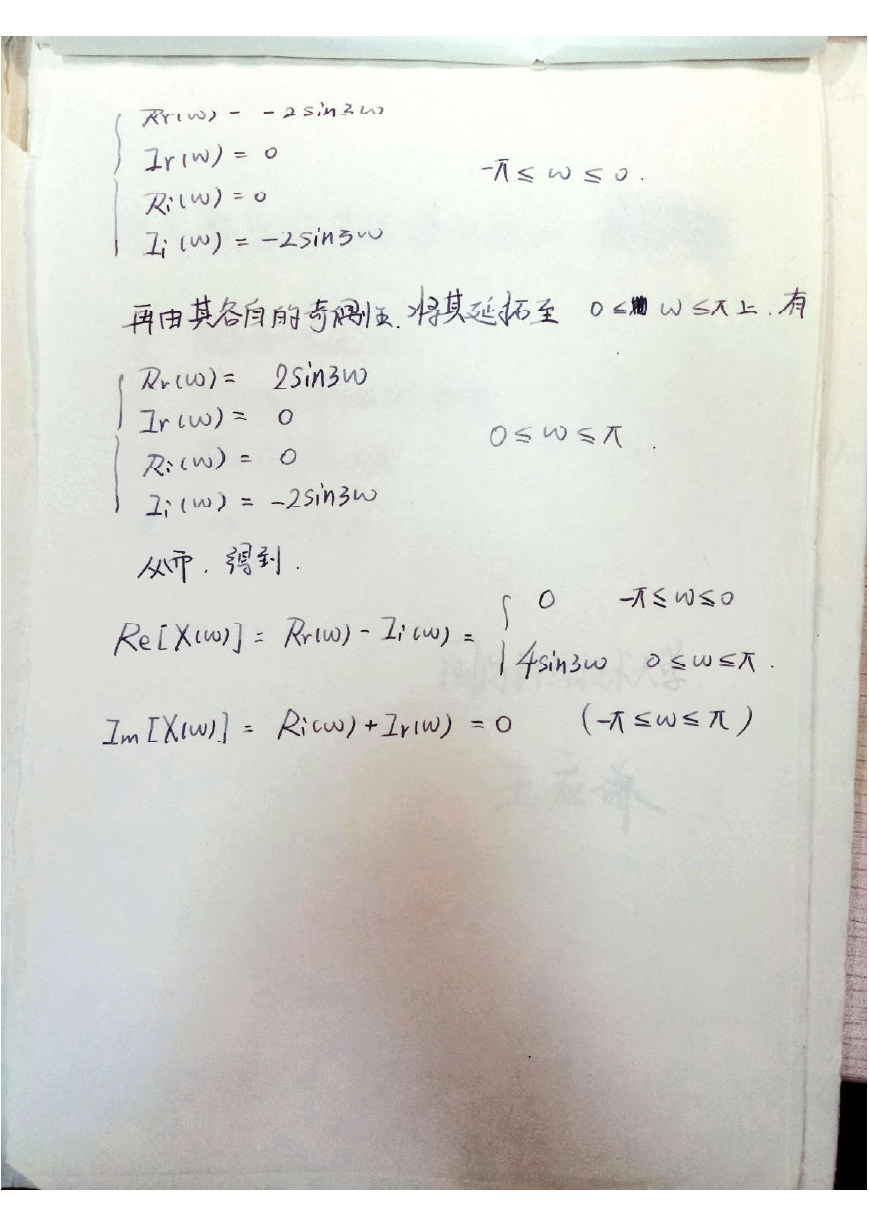 Rr(ω) - -2sin3ω
Ir(ω) = 0
-π ≤ ω ≤ 0.
Ri(ω) = 0
Ii(ω) = -2sin3ω
再由其各自的奇偶性.将其延拓至 0 ≤ ω ≤ π 上.有
Rr(ω) = 2sin3ω
Ir(ω) = 0
0 ≤ ω ≤ π.
Ri(ω) = 0
Ii(ω) = -2sin3ω
从而.得到.
Re[X(ω)] = Rr(ω) - Ii(ω) = { 0 -π ≤ ω ≤ 0
4sin3ω 0 ≤ ω ≤ π.
Im[X(ω)] = Ri(ω) + Ir(ω) = 0 (-π ≤ ω ≤ π)